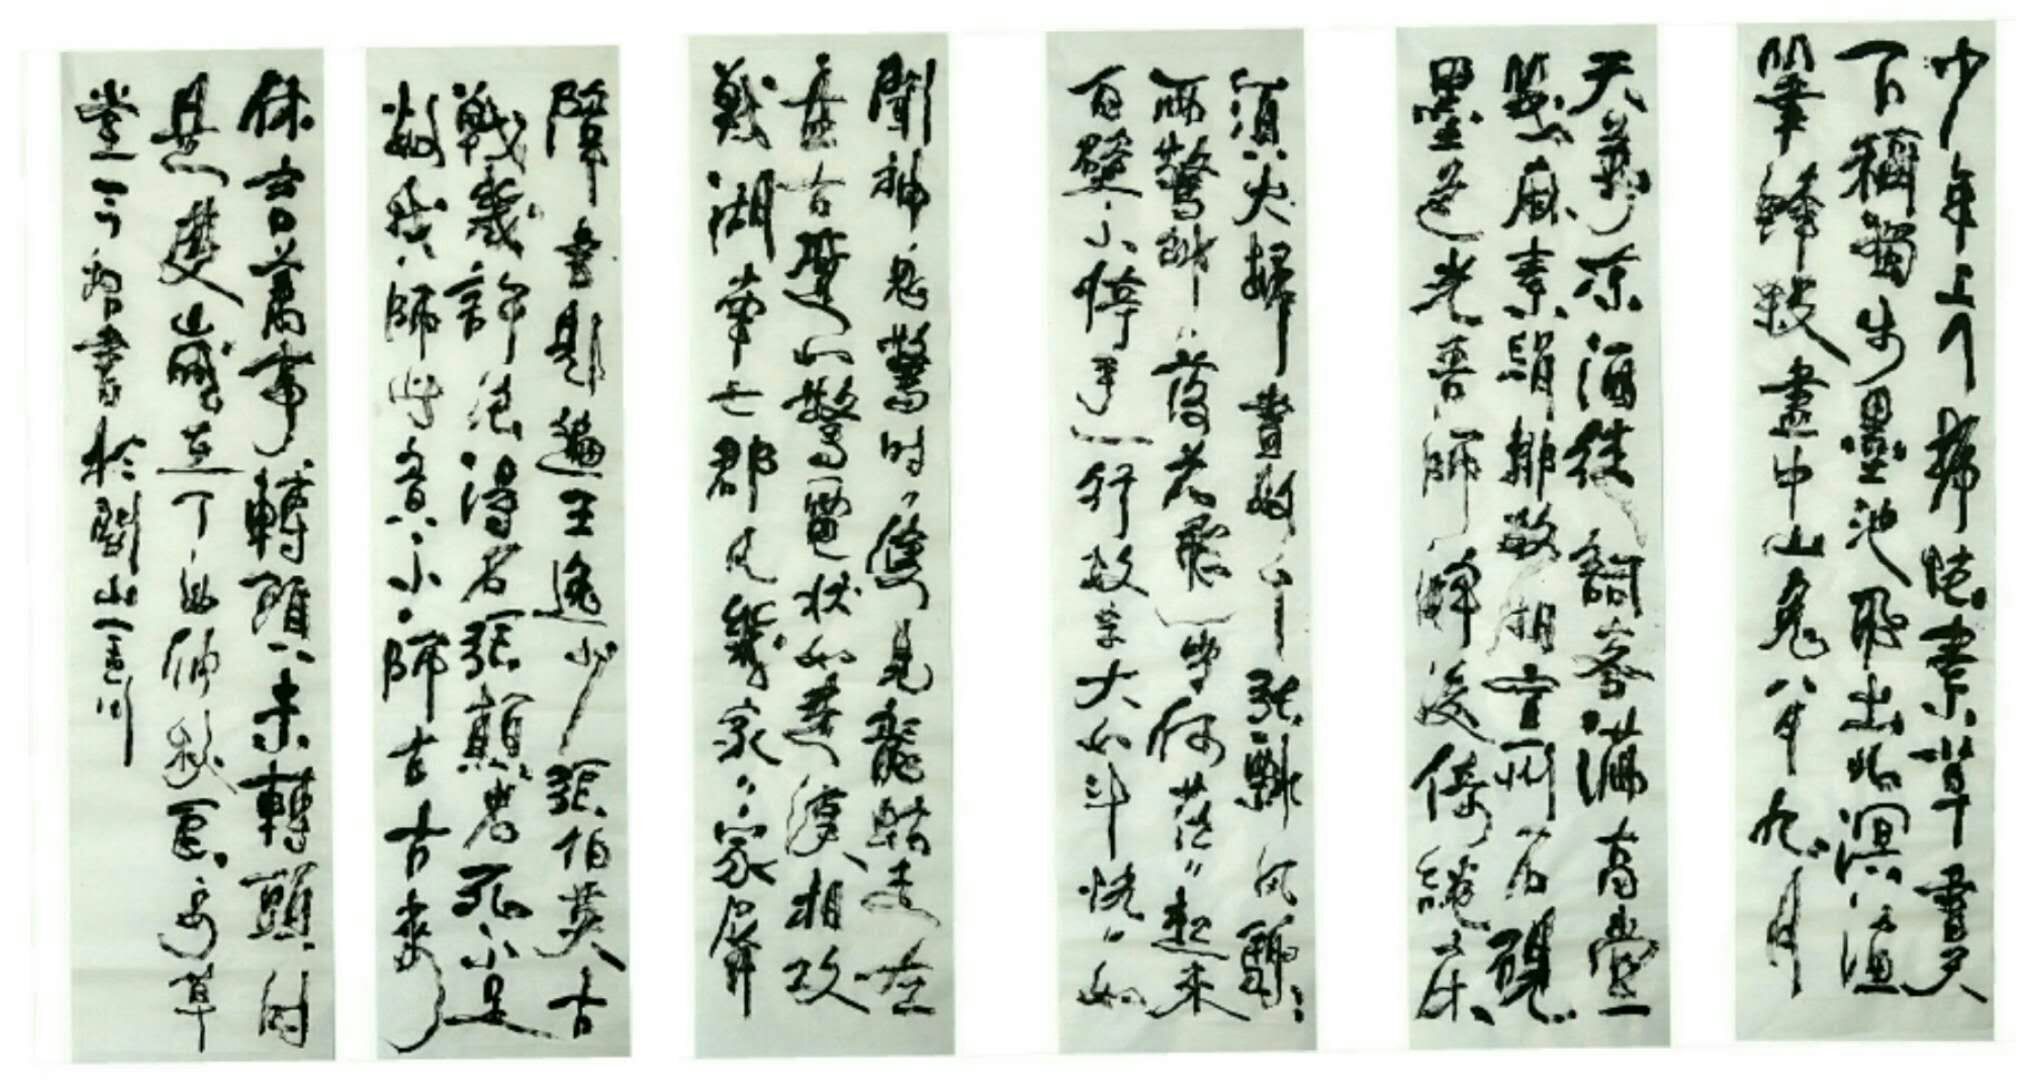 少年上人號懷素草書天
下稱獨步墨池飛出北溟漁
筆鋒殺盡中山兔八月九月
天氣凉酒徒詞客滿高堂
箋麻素絹排數廂宣州石硯
墨色光吾師醉後倚繩床
須臾掃盡數千張飄風驟
雨驚颯颯落花飛雪何茫茫起來
向壁不停手一行數字大如斗恍恍如
聞神鬼驚時時隻見龍蛇走左
盤右蹙如驚電狀如楚漢相攻
戰湖南七郡凡幾家家家屏
障書題遍王逸少張伯英古
幾許浪得名張顛老死不足
數我師此不師古古來
休言萬事轉頭未轉頭時
是雙丁酉仲秋草
堂書於山